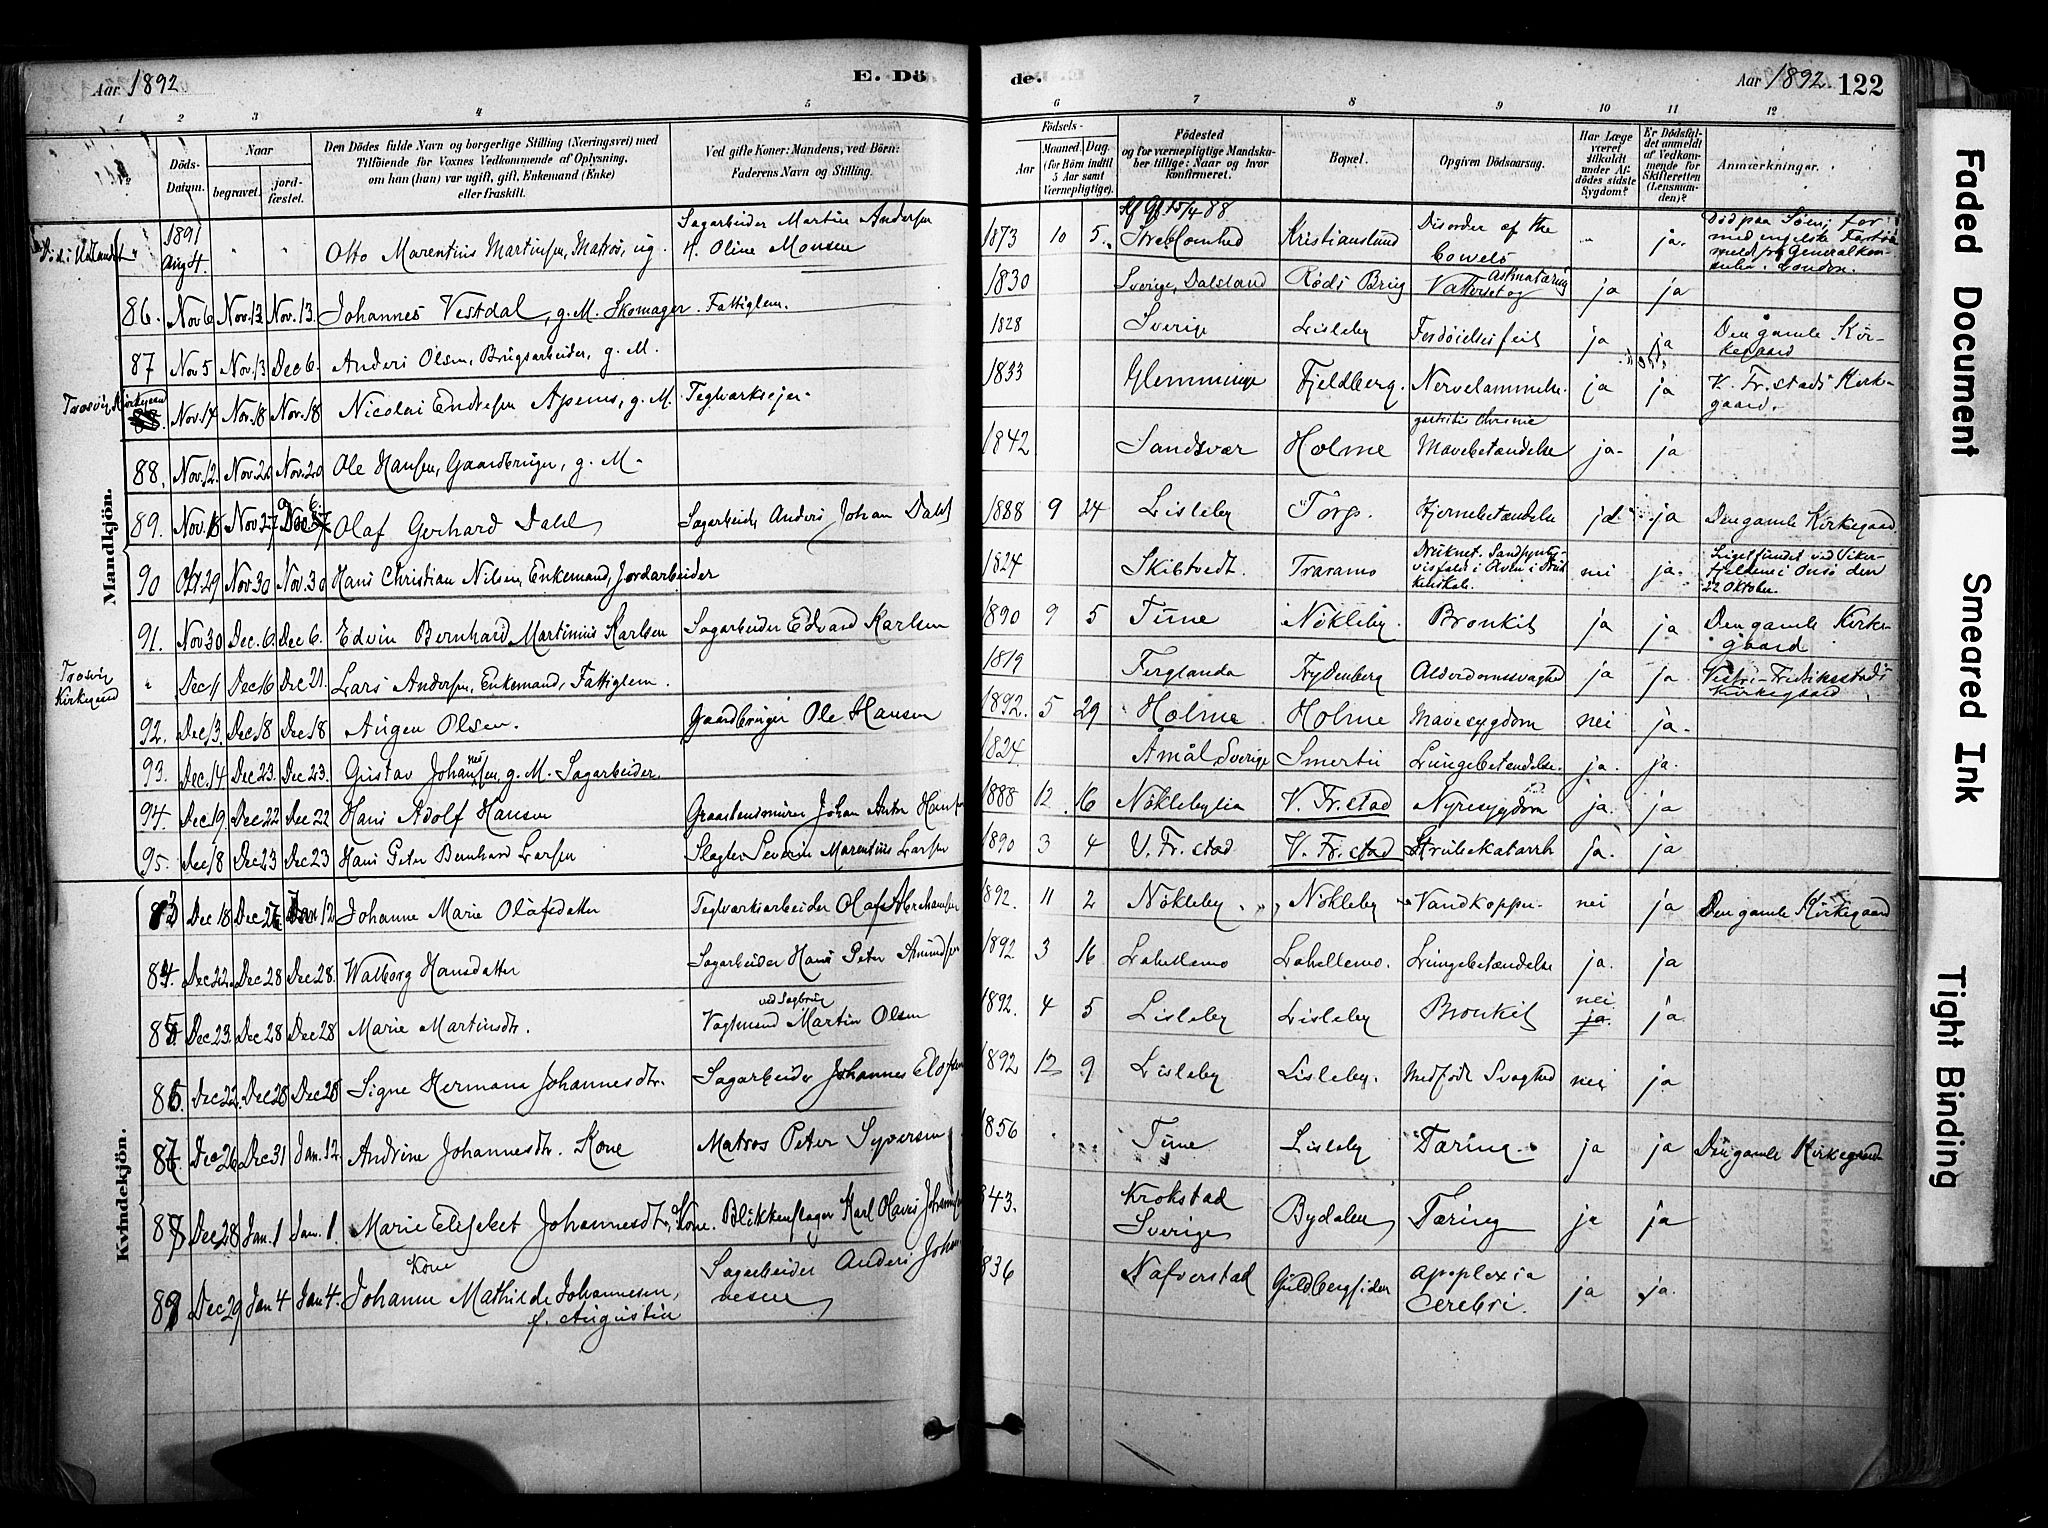 Aar 1892
E. Dö
de.
Aar 1892. 122
1 2 3 4 5 6 7 8 9 10 11 12
Döds-Datum.
Naar
begravet.
jord-fæstet.
Den Dödes fulde Navn og borgerlige Stilling (Næringsvei) med
Tilföiende for Voxnes Vedkommende af Oplysning,
om han (hun) var ugift, gift, Enkemand (Enke)
eller fraskilt.
Ved gifte Koner: Mandens, ved Börn:
Faderens Navn og Stilling.
Födsels-
Aar
Maaned. Dag.
(for Börn indtil 5 Aar samt Værnepligtige).
Födested
og for værnepligtige Mandska-
ber tillige: Naar og hvor
konfirmeret.
Bopæl.
Opgiven Dödsaarsag.
Har Læge været tilkaldt under Af-dödes sidste Sygdom?
Er Dödsfal-det anmeldt af Vedkom-mende for Skifteretten (Lensman-den)?
Anmærkninger.
Mandkjön.
Död i Udlandet " 1891 Aug 4. " " Otto Marentius Martinsen, Matros, ug. Sagarbeider Martin Andersen H. Oline Monsen 1873 10 5. Kristianslund Disorder of the bowels " ja. London.
86. Nov 6 Nov. 13 Nov. 13. Johannes Vestdal, g. M. Skomager. Fattiglem. 1830 Sverige, Dalsland Rödi Brug Vattersot og ja ja
87 Nov 5 Nov. 13 Dec 6. Anders Olsen, Brugsarbeider, g. M. 1828 Sverige Lisleby ja ja Den gamle Kirkegaard
Trosvig Kirkegaard 88. Nov. 14 Nov. 18 Nov. 18 Nicolai Endresen Apenes, g. M. Teglværksejer 1833 Glemminge Fjeldberg. Nervelammelse. ja ja V. Fr. stads Kirkegaard.
88. Nov. 12. Nov. 20 Nov. 20 Ole Hansen, Gaardbruger, g. M. 1842 Sandsvær Holme Mavebetændelse ja. ja
89. Nov. 18 Nov 27 Dec 6 Olaf Gerhard Dahl Sagarbeider Anders Johan Dahl 1888 9 24 Lisleby Torp. Hjernebetændelse ja ja Den gamle Kirkegaard
90 Oct 29 Nov 30 Nov. 30 Hans Christian Nilsen, Enkemand, Jordarbeider 1824 Skibtvedt. Traramo Druknet. nei ja. Liget fundet ved Viker- i Onsö den 22 Oktober.
91. Nov 30 Dec. 6 Dec 6. Edvin Bernhard Martinius Karlsen Sagarbeider Edvard Karlsen 1890 9 5 Tune Nökleby. Bronkit ja ja Den gamle Kirkegaard
Trosvig Kirkegaard " Dec 11 Dec 16 Dec 21. Lars Andersen, Enkemand, Fattiglem. 1819 Ferglanda Frydenberg Alderdomssvaghed ja ja. Vestre-Fredriksstads Kirkegaard
92. Dec. 13. Dec 18 Dec 18 Augen Olsen. Gaardbruger Ole Hansen 1892. 5 29 Holme Holme Mavesygdom nei ja.
93. Dec. 14 Dec 23. Dec. 23. Gustav Johannesen, g. M. Sagarbeider 1824 Åmål, Sverige Smertu Lungebetændelse. ja. ja.
94. Dec 19. Dec 22 Dec 22 Hans Adolf Hansen Graastensmurer Johan Anton Hansen 1888 12 16 Nöklebylia V. Fr. stad Nyresygdom ja. ja
95. Dec 18 Dec 23 Dec 23 Hans Peter Bernhard Larsen Slagter Severin Marentius Larsen 1890 3 4 V. Fr. stad V. Fr. stad Strubekatarrh ja. ja
Kvindekjön.
83 Dec 18 Dec 26 Jan 12 Johanne Marie Olafsdatter Teglværksarbeider Olaf Abrahamsen 1892. 11 2 Nökleby Nökleby Vandkopper. nei ja Den gamle Kirkegaard
84. Dec 22. Dec 28 Dec 28. Walborg Hansdatter Sagarbeider Hans Peter Amundsen 1892 3 16 Lahellemo Lahellemo. Lungebetændelse ja. ja
85 Dec 23. Dec 28 Dec 28 Marie Martinsdtr. Vogtmand ved Sagbrug Martin Olsen 1892. 4 5 Lisleby Lisleby Bronkit nei ja. ja.
86. Dec 22. Dec 28 Dec 28 Signe Hermana Johannesdtr. Sagarbeider Johannes Elofsen 1892 12 9 Lisleby Lisleby. Medfödt Svaghed nei ja
87. Dec 26 Dec 31 Jan. 12. Andrine Johannesdtr. Kone Matros Peter Syversen 1856 Tune Lisleby Tæring. ja ja Den gamle Kirkegaard
88 Dec 28 Jan. 1 Jan. 1. Marie Elisebet Johannesdtr, Kone. Blikkenslager Karl Olavus Johannsen 843. Krokstad Sverige Bydalen Tæring ja ja
89 Dec 29 Jan 4 Jan 4. Johanne Mathilde Johannesen, Kone f. Augustin Sagarbeider Anders Johannesen 836 Nafverstad Guldbergsiden Apoplexia Cerebri. ja ja.
Faded Document
Smeared Ink
Tight Binding